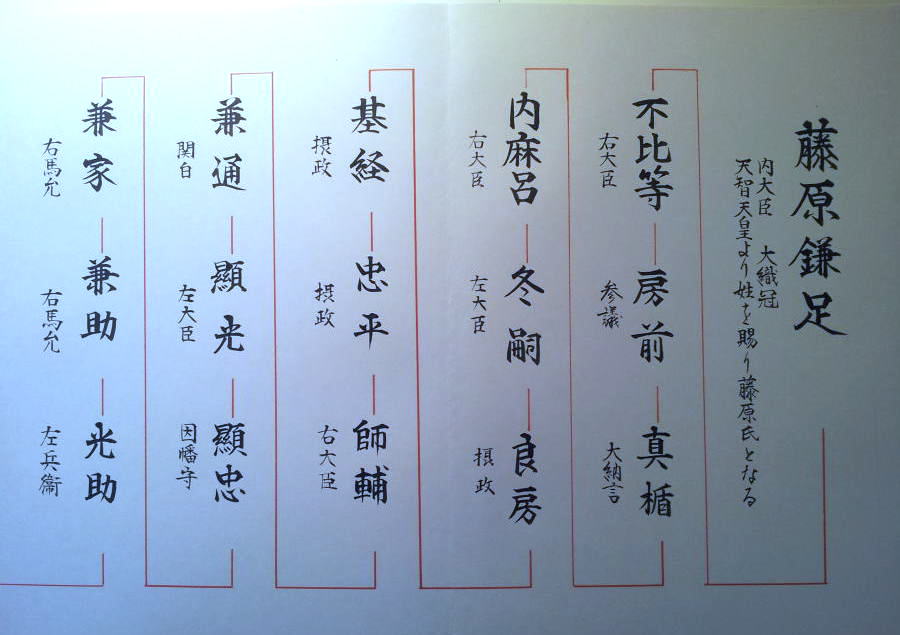 藤原鎌足
内大臣 大織冠
天智天皇より姓を賜り藤原氏となる
不比等
右大臣
房前
参議
真楯
大納言
内麻呂
右大臣
冬嗣
左大臣
良房
摂政
基経
摂政
忠平
摂政
師輔
右大臣
兼通
関白
顯光
左大臣
顯忠
因幡守
兼家
右馬允
兼助
右馬允
光助
左兵衞